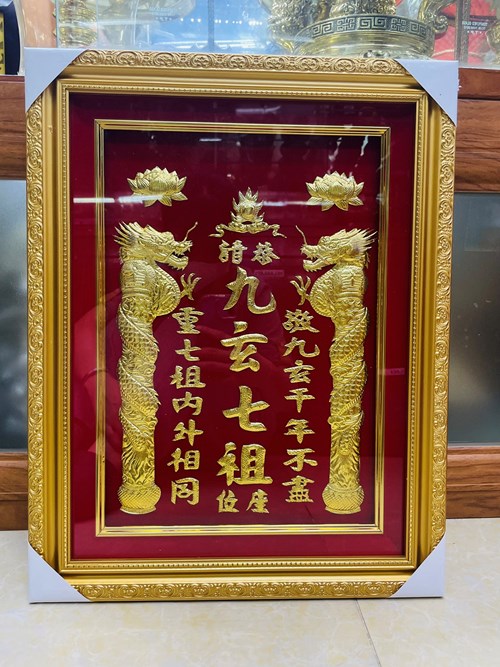 恭請
敬九玄千年不盡
九玄七祖
重七祖内外相同
座位